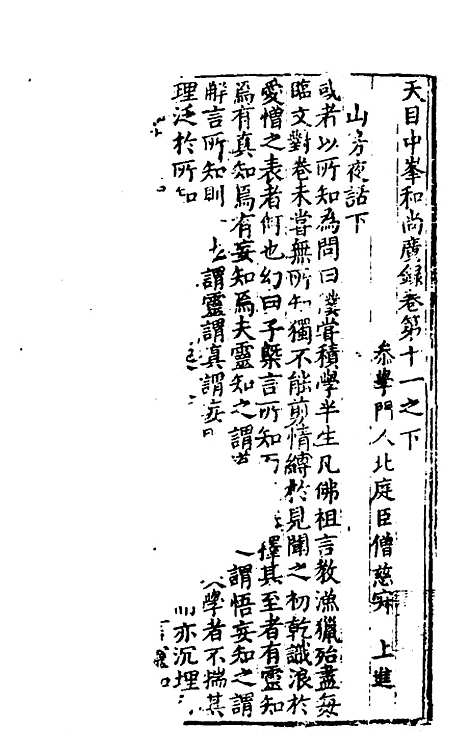 天目中峯和尚廣錄卷第十一之下
叅學門人北庭臣僧慈寂 上進
山房夜話下
或者以所知為問曰某嘗積學半生凡佛祖言教漁獵殆盡每
臨文對卷未嘗無所知獨不能剪情縛於見聞之初乾識浪於
愛憎之表者何也幻曰子槩言所知而 擇其至者有靈知
焉有真知焉有妄知焉夫靈知之謂道 謂悟妄知之謂
解言所知則 謂靈謂真謂妄 學者不揣其
理泛於所知 亦沉埋